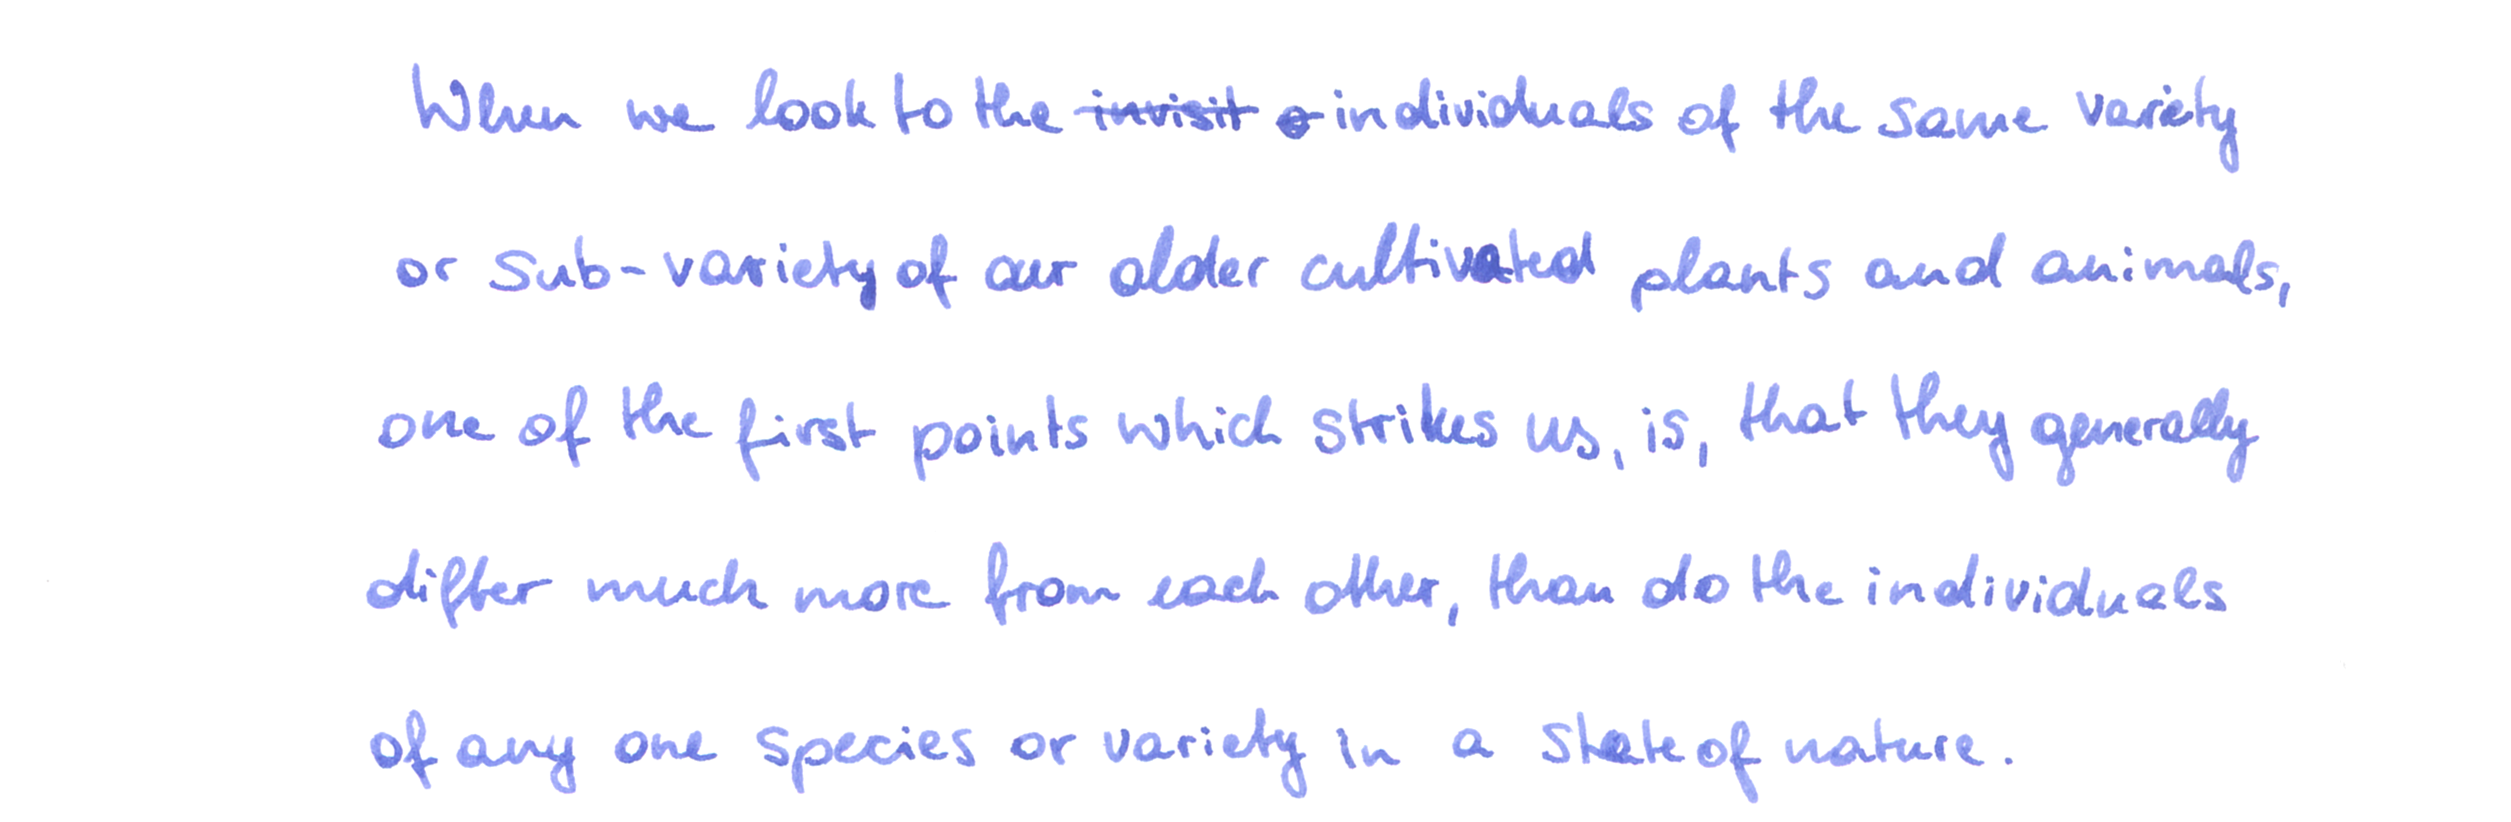 When we look to the invisit individuals of the same variety
or sub-variety of our older cultivated plants and animals,
one of the first points which strikes us, is, that they generally
differ much more from each other, than do the individuals
of any one species or variety in a state of nature.